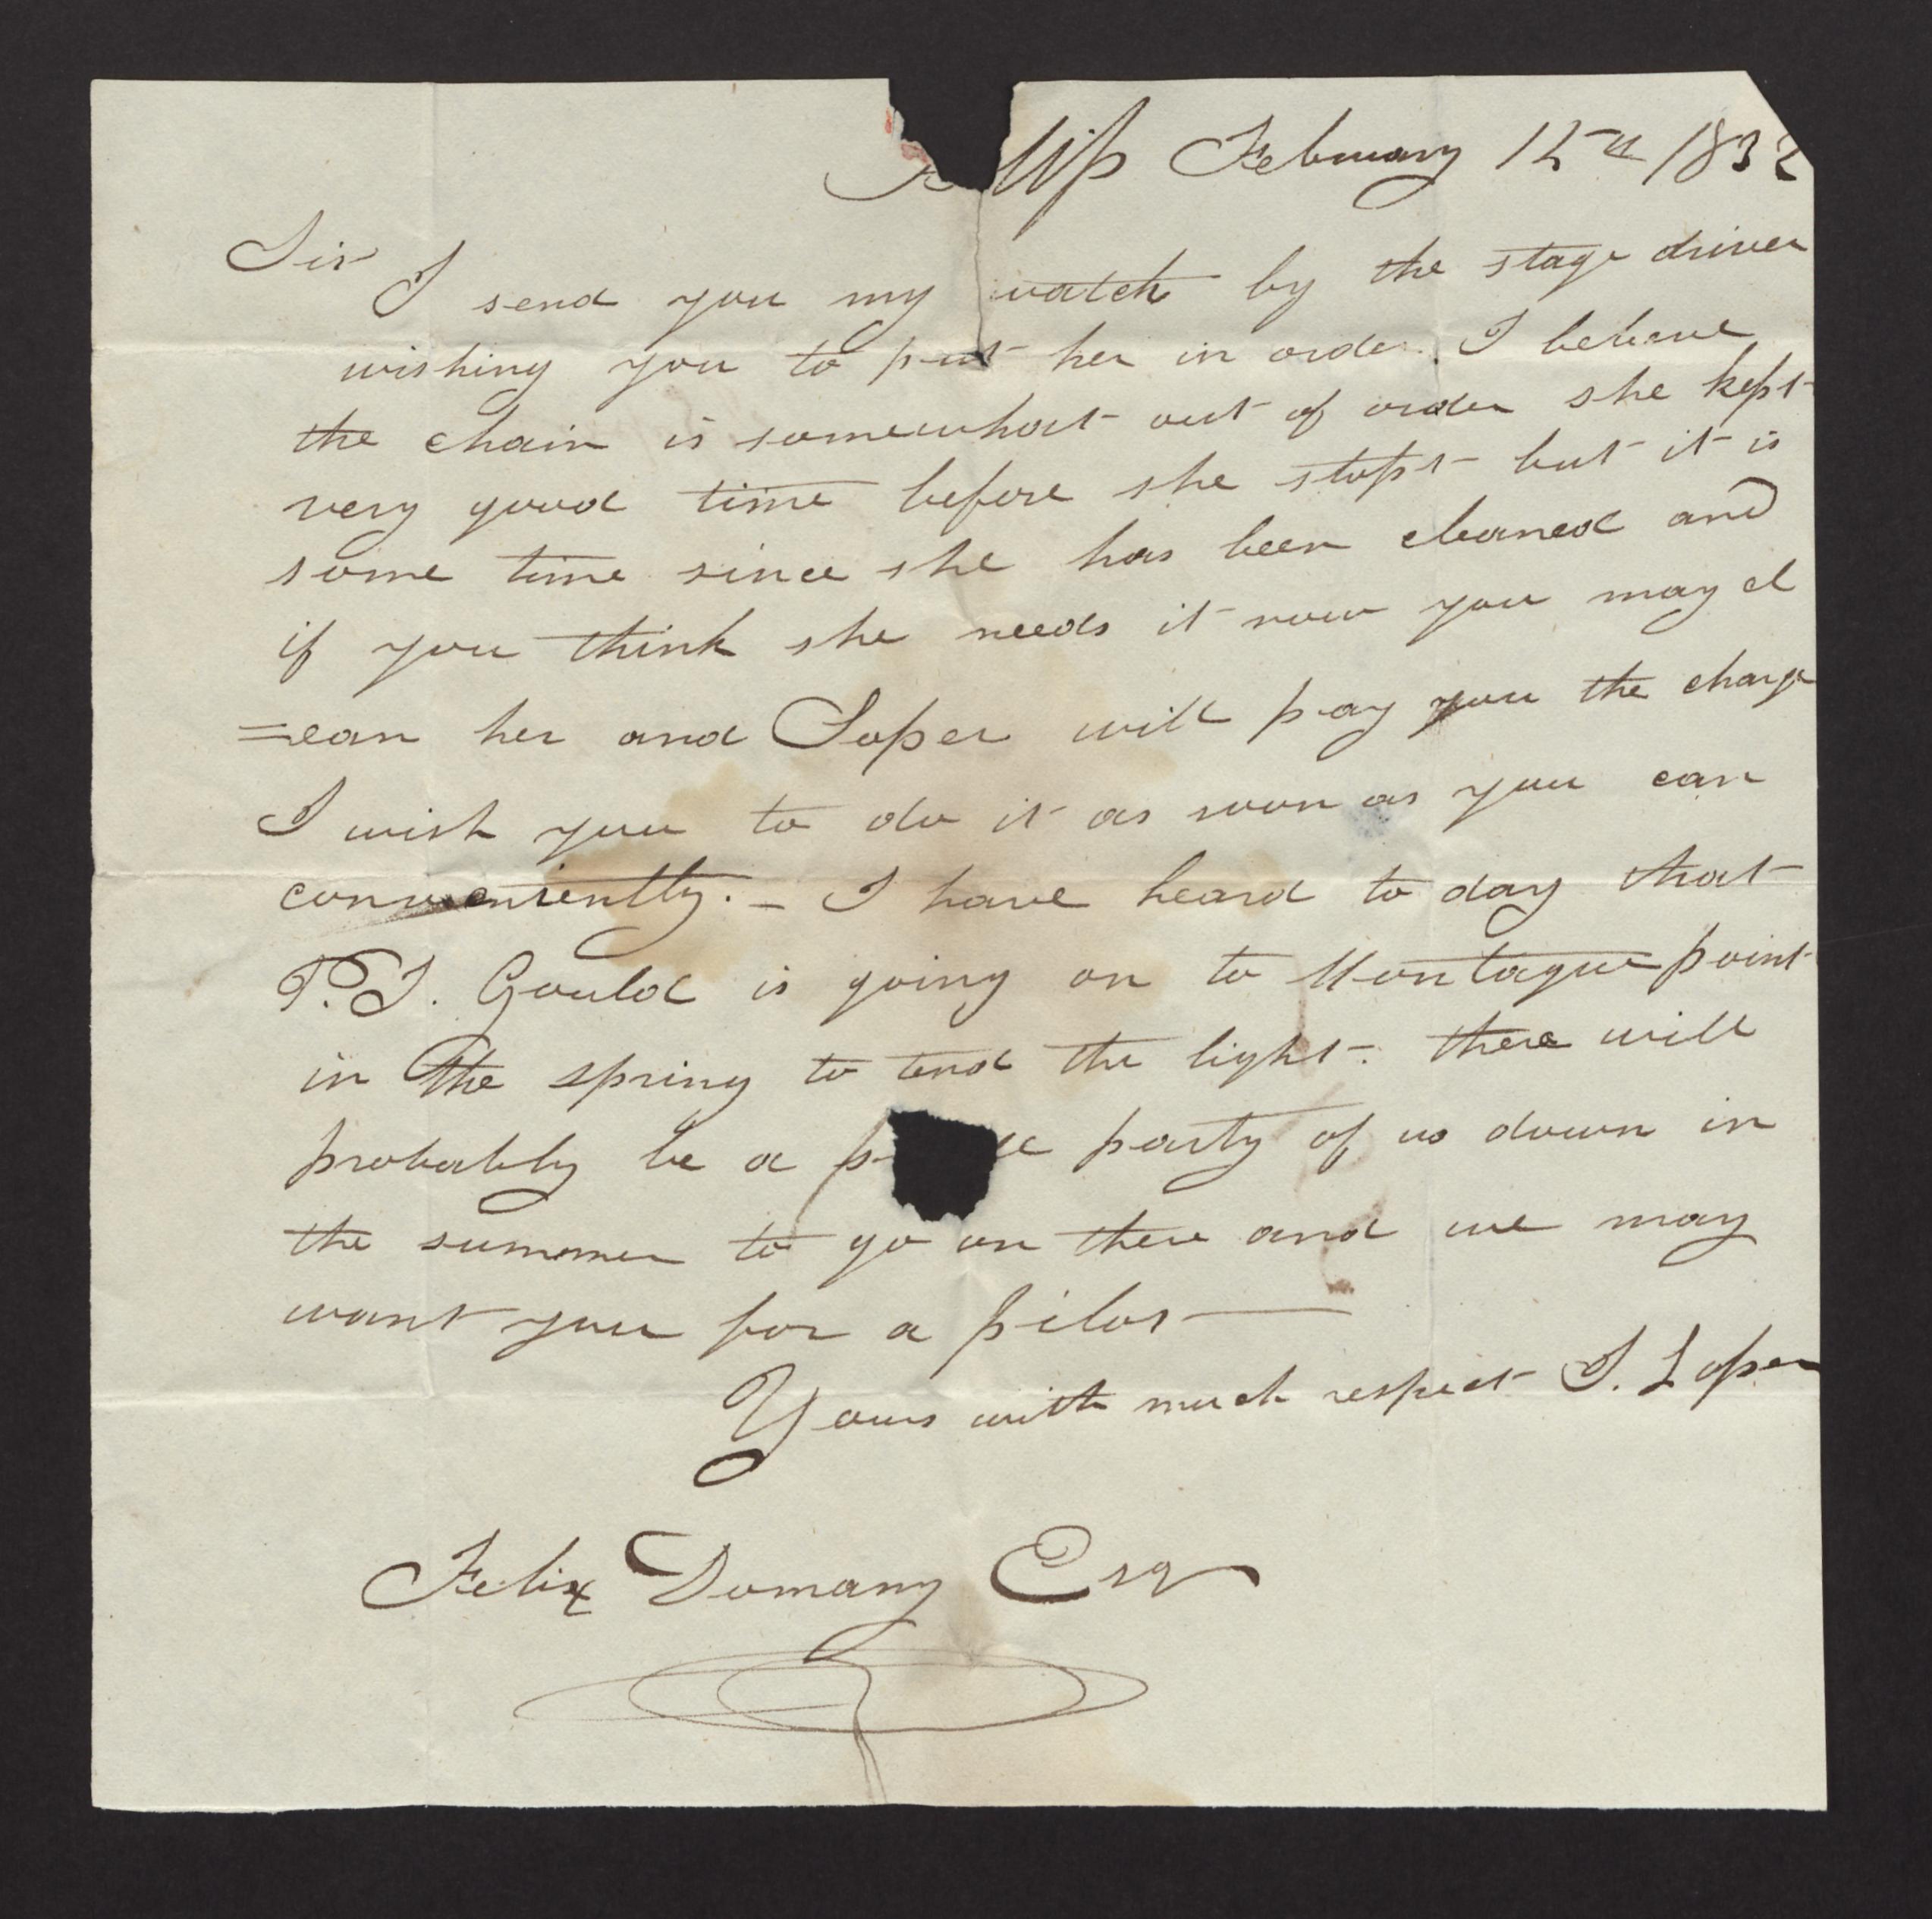 Islip February 12th 1832
Sir
I send you my watch by the stage driver
wishing you to put her in order. I beleave
the chain is somewhat out of order she kept
very good time before she stopt but it is
some time since she has been cleaned and
if you think she needs it now you may cl
=ean her and Soper will pay you the charge
I wish you to do it as soon as you can
conveniently. – I have heard to day that
P.T. Gould is going on to Montague point
in the spring to tend the light. there will
probably be a party of us down in
the summer to go on there and we may
want you for a pilot —
Yours with much respect
Felix Domany Esq